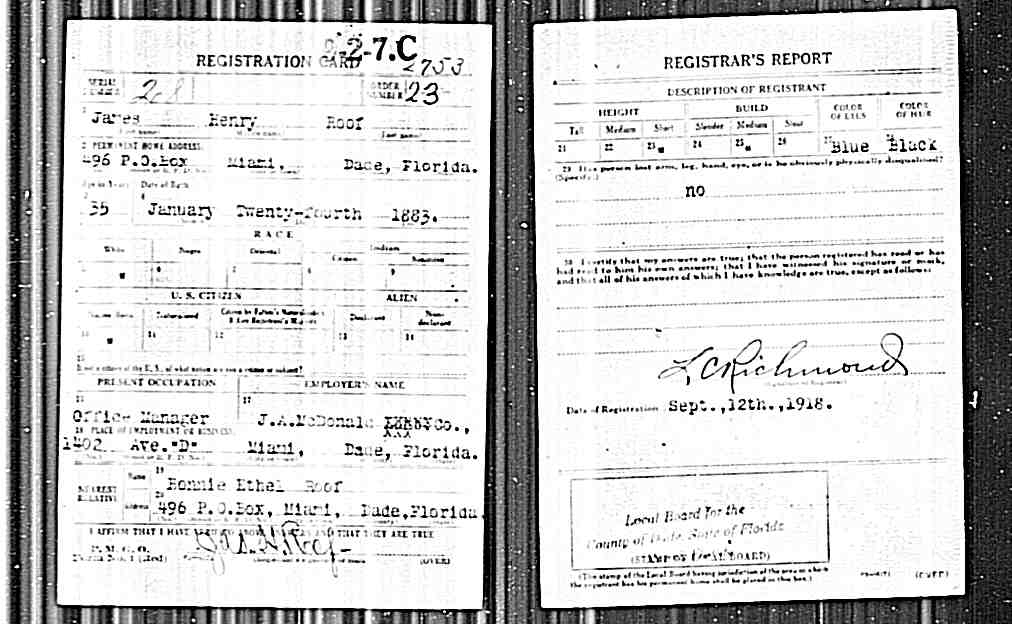 2-7.C
REGISTRATION CARD 2753
SERIAL NUMBER 28 ORDER NUMBER 23
James Henry Roof
2 PERMANENT HOME ADDRESS:
496 P.O.Box Miami, Dade, Florida.
Age in Years Date of Birth
35 January Twenty-fourth 1883.
RACE
White Negro Oriental Indian
Citizen
5 6 7 8 9
U. S. CITIZEN ALIEN
Native Born Naturalized Declarant Non-declarant
10 11 12 13 14
15
PRESENT OCCUPATION EMPLOYER'S NAME
16 17
Office Manager J.A.McDonald Co.,
18 PLACE OF EMPLOYMENT OR BUSINESS:
1402 Ave."D" Miami, Dade, Florida.
NEAREST RELATIVE
Name 19
Bonnie Ethel Roof
Address 20
496 P.O.Box, Miami, Dade,Florida.
I AFFIRM THAT I HAVE VERIFIED ABOVE ANSWERS AND THAT THEY ARE TRUE
P. M. G. O.
Form No. 1 (Red) (OVER)
REGISTRAR'S REPORT
DESCRIPTION OF REGISTRANT
HEIGHT BUILD COLOR OF EYES COLOR OF HAIR
Tall Medium Short Slender Medium Stout
21 22 23 24 25 26 27 Blue 28 Black
29 Has person lost arm, leg, hand, eye, or is he obviously physically disqualified?
(Specify.)
no
30 I certify that my answers are true; that the person registered has read or has
had read to him his own answers; that I have witnessed his signature or mark,
and that all of his answers of which I have knowledge are true, except as follows:
L C Richmond
(Signature of Registrar)
Date of Registration Sept.,12th.,1918.
Local Board for the
County of Dade, State of Florida
(STAMP OF LOCAL BOARD)
(The stamp of the Local Board having jurisdiction of the area in which
the registrant has his permanent home shall be placed in this box.)
(OVER)